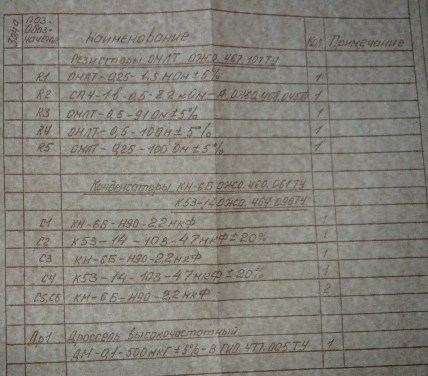 Зона Поз. обозначение Наименование Кол. Примечание
Резисторы ОМЛТ ОЖО.467.107ТУ
R1 ОМЛТ-0,25-1,5 мОм ±5% 1
R2 СП4-1в-0,5-82 кОм-А ОЖО.
R3 ОМЛТ-0,5-91 Ом ±5% 1
R4 ОМЛТ-0,5-100м ±5% 1
R5 ОМЛТ-0,25-100 Ом ±5% 1
Конденсаторы КМ-6Б ОЖО.460.061ТУ
К53-14 ОЖО.464.
С1 КМ-6Б-Н90-2,2 мкФ 1
С2 К53-14-10В-47 мкФ ±20% 1
С3 КМ-6Б-Н90-2,2 мкФ 1
С4 К53-14-10В-47 мкФ ±20% 1
С5,С6 КМ-6Б-Н90-2,2 мкФ 2
Др1 Дроссель высокочастотный
ДМ-0,1-500 мкГ ±5%-В ГИО.477.005ТУ 1